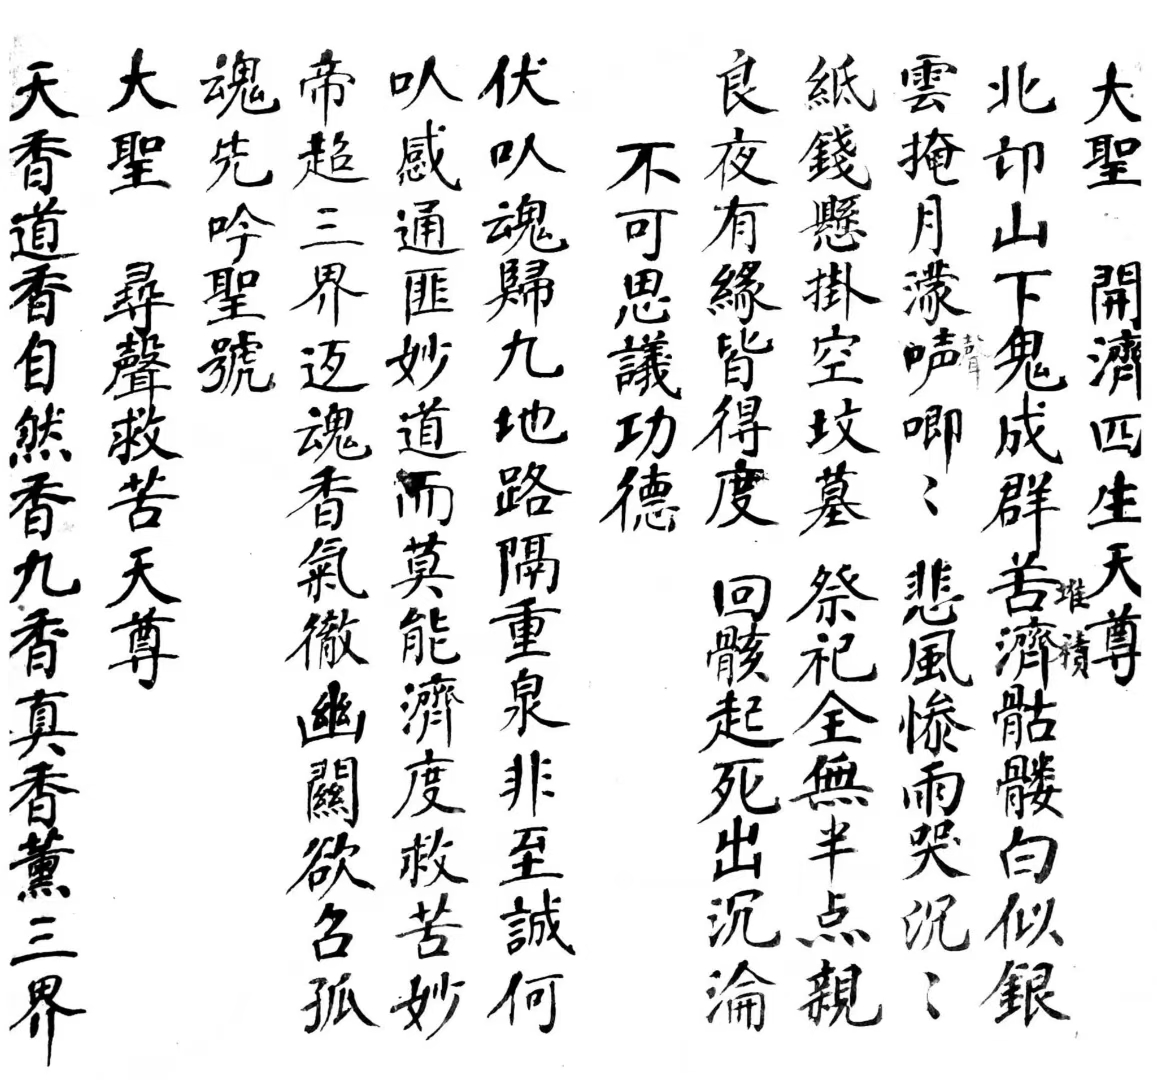 大聖 開濟四生天尊
北邙山下鬼成群苦濟骷髏白似銀
堆積
雲掩月濛㕺唧〻悲風惨雨哭沉〻
聲
紙錢懸掛空坟墓祭祀全無半点親
良夜有緣皆得度 回骸起死出沉淪
不可思議功德
伏㕥魂歸九地路隔重泉非至誠何
㕥感通匪妙道而莫能濟度救苦妙
帝超三界返魂香氣徹幽關欲召孤
魂先吟聖號
大聖 尋聲救苦天尊
天香道香自然香九香真香薰三界